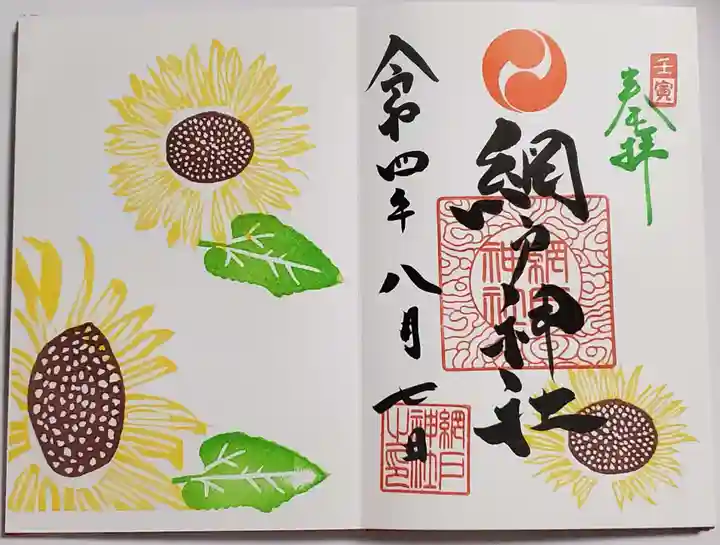 壬寅
奉拝
網戸神社
網戸神社
令和四年八月七日
網戸神社之印